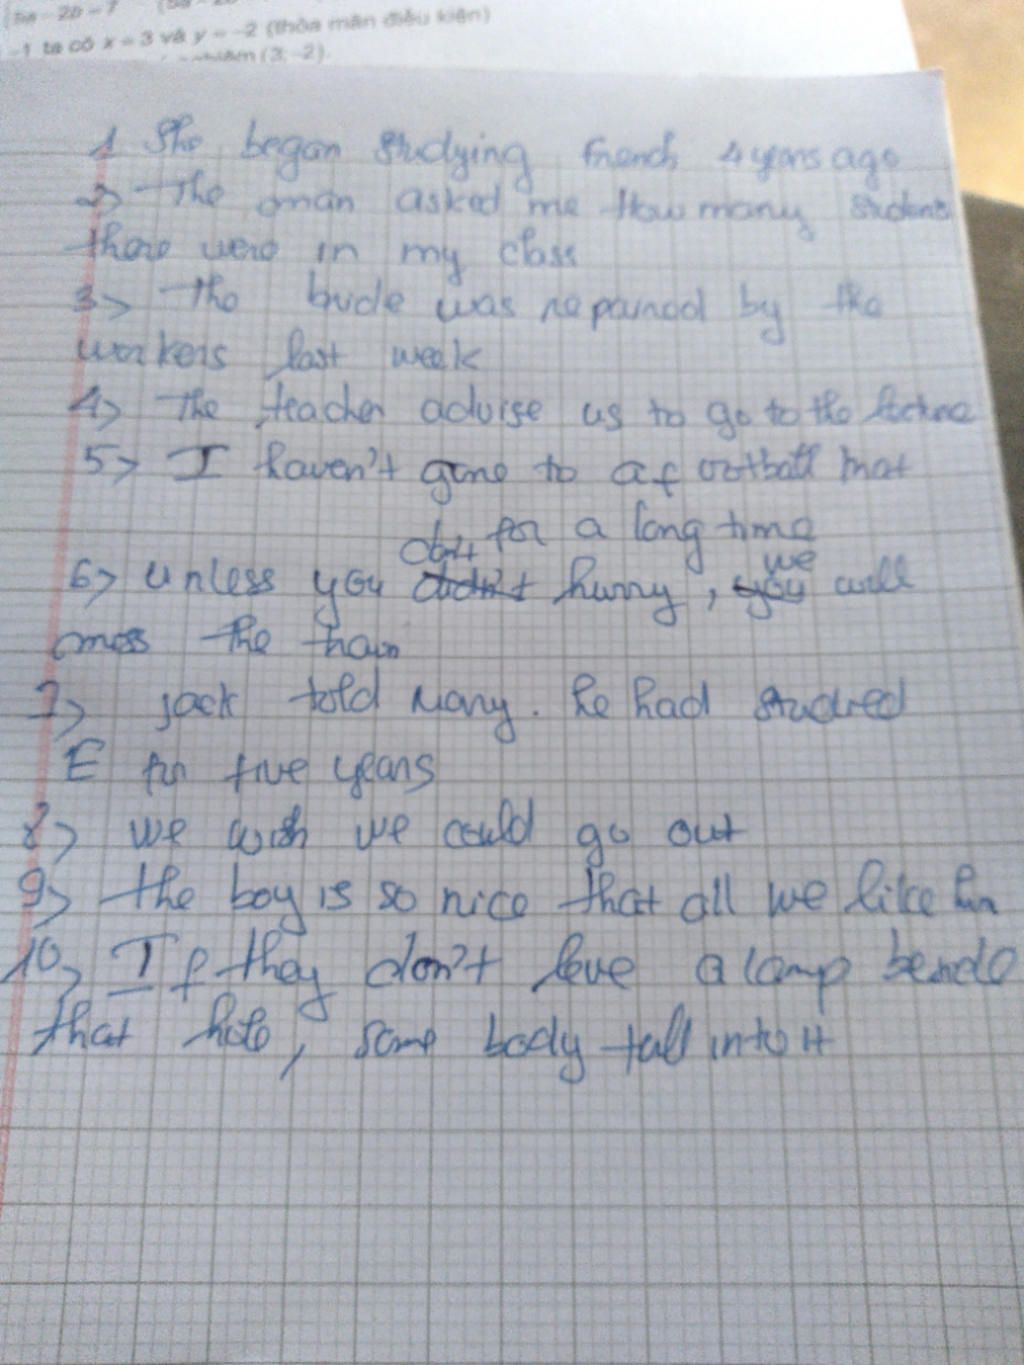 -2b = 7
-1 ta có x = 3 và y = -2 (thỏa mãn điều kiện)
(3; -2).
1 She began studying french 4 years ago
2> The man asked me How many students
there were in my class
3> The was repaired by the
workers last week
4> The teacher advise us to go to the
5> I haven't gone to a football mat
for a long time
don't we
6> unless you didn't hurry, you will
miss the train
7> jack told Mary. he had studied
E for five years
8> we wish we could go out
9> the boy is so nice that all we like him
10> If they don't leve a lamp beside
that hole, some body fall into it